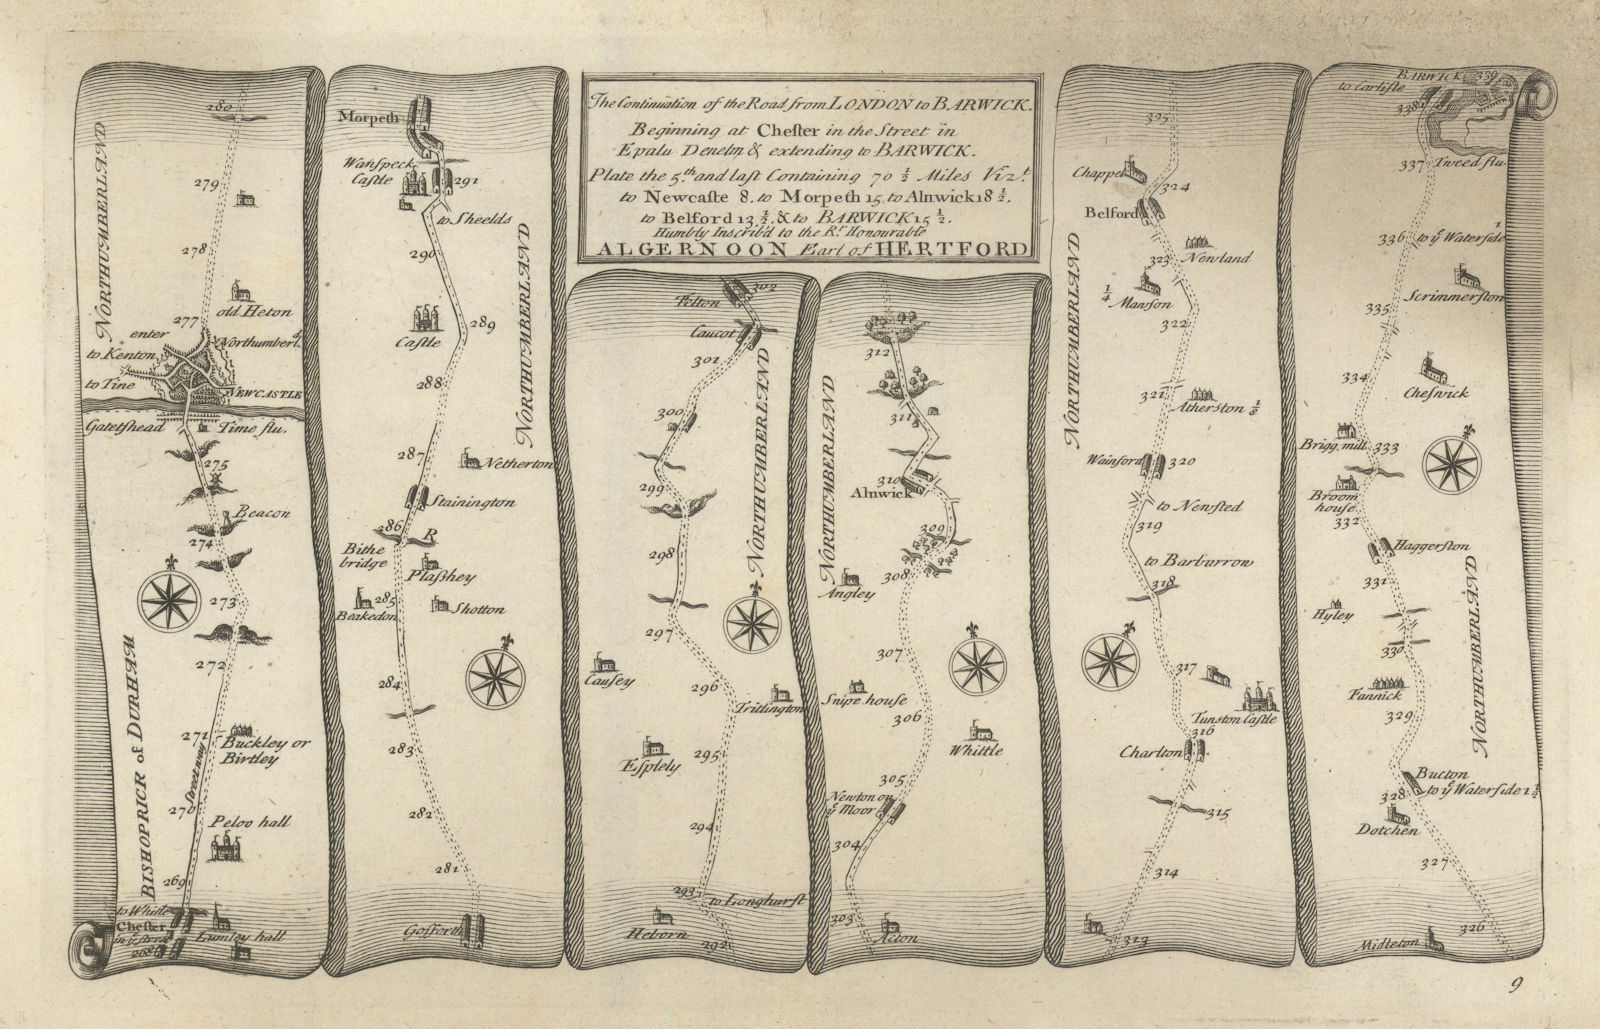 The Continuation of the Road from LONDON to BARWICK.
Beginning at Chester in the Street in
Epalu Denelm & extending to BARWICK.
Plate the 5.th and last Containing 70 ½ Miles Viz.t
to Newcaste 8. to Morpeth 15. to Alnwick 18 ½.
to Belford 13 ½. & to BARWICK 15 ½.
Humbly Inscrib'd to the R.t Honourable
ALGERNOON Earl of HERTFORD
280
NORTHUMBERLAND
279
278
old Heton
277
enter
Northumberl.d
to Kenton
to Tine
NEWCASTLE
Gatetshead
Time flu.
275
Beacon
274
273
272
BISHOPRICK of DURHAM
271
Buckley or
Birtley
Streetway
270
Peloo hall
269
Chester
in ye street
268
Lumley hall
Morpeth
Wanspeck
Castle
291
to Sheelds
290
NORTHUMBERLAND
289
Castle
288
287
Netherton
Stainington
286
R
Bithe
bridge
Plasshey
285
Beakedon
Shotton
284
283
282
281
Gosforth
302
Felton
Caucot
301
NORTHUMBERLAND
300
299
298
297
Causey
296
Tritlington
Esplely
295
294
293
to Longhurst
Heborn
292
312
NORTHUMBERLAND
311
310
Alnwick
309
308
Angley
307
Snipe house
306
Whittle
305
Newton on
ye Moor
304
303
Acton
325
Chappel
324
Belford
323
Newland
¼
Manson
322
NORTHUMBERLAND
321
Atherston ⅛
Wainford
320
to Newsted
319
to Barburrow
318
317
Tunston Castle
316
Charlton
315
314
313
BARWICK
339
to Carlisle
338
337
Tweed flu
336
to ye Waterside
Scrimmerston
335
334
Cheswick
Brigg mill
333
Broom
house
332
Haggerston
331
Hyley
330
NORTHUMBERLAND
Fannick
329
Bucton
328
to ye Waterside 1 ½
Dotchen
327
326
Midleton
9